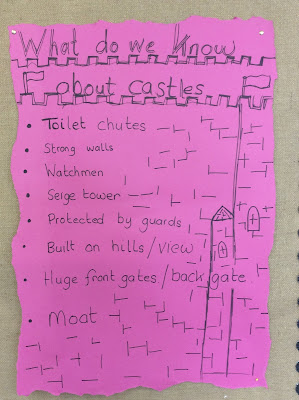 What do we know
about castles
• Toilet chutes
• Strong walls
• Watchmen
• Seige tower
• Protected by guards
• Built on hills/view
• Huge front gates/back gate
• Moat